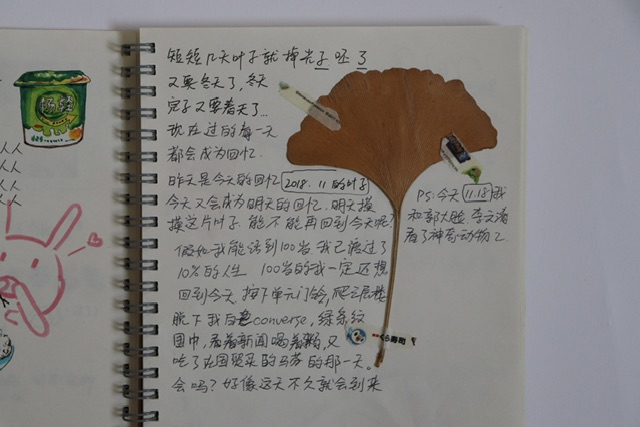 畅轻
人
人
人
人
短短几天叶子就掉光了呀了
又要冬天了,冬天
完了又要春天了...
现在过的每一天
都会成为回忆.
昨天是今天的回忆 2018.11的叶子
今天又会成为明天的回忆.明天摸
摸这片叶子能不能再回到今天呢?
假如我能活到100岁 我已渡过了
10%的人生 100岁的我一定还想
回到今天,按下单元门铃,爬三层楼
脱下我白色converse,绿条纹
围巾,看着新闻喝着粥,又
吃了在国贸买的马芬的那一天.
会吗?好像这天不久就会到来
PS:今天11.18我
和郭大脸,李文涛
看了神奇动物2.
くら寿司